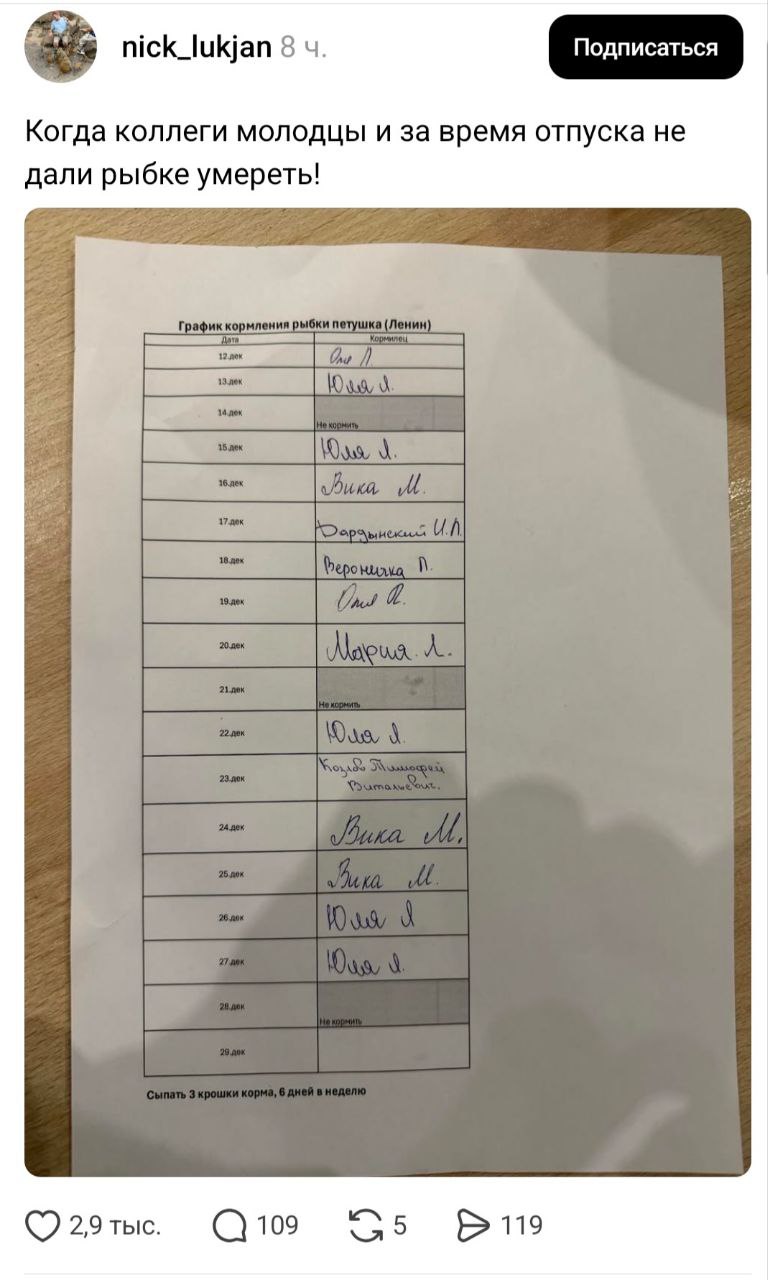 nick_lukjan 8 ч.
Подписаться
Когда коллеги молодцы и за время отпуска не
дали рыбке умереть!
График кормления рыбки петушка (Ленин)
Дата Кормилец
12.дек Оля Л.
13.дек Юля Я.
14.дек Не кормить
15.дек Юля Я.
16.дек Вика М.
17.дек Бардынский И.П.
18.дек Вероничка П.
19.дек Оля Л.
20.дек Мария Л.
21.дек Не кормить
22.дек Юля Я.
23.дек Козлов Тимофей
Витальевич.
24.дек Вика М.
25.дек Вика М.
26.дек Юля Я
27.дек Юля Я.
28.дек Не кормить
29.дек
Сыпать 3 крошки корма, 6 дней в неделю
2,9 тыс. 109 5 119